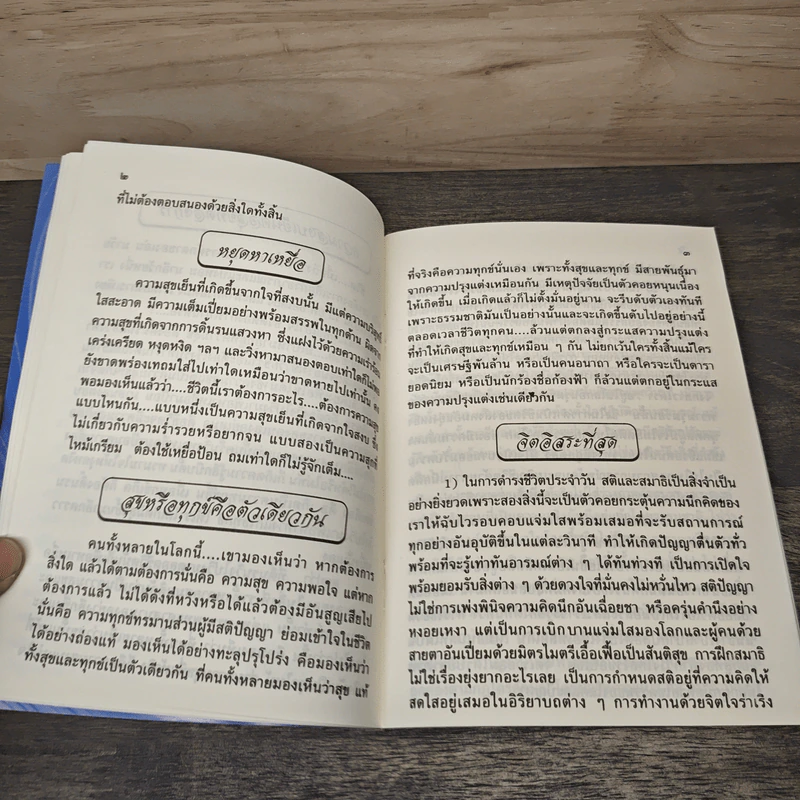 ๒
ที่ไม่ต้องตอบสนองด้วยสิ่งใดทั้งสิ้น
หยุดหาเหยื่อ
ความสุขเย็นที่เกิดขึ้นจากใจที่สงบนั้น มีแต่ความบริสุทธิ์
ใสสะอาด มีความเต็มเปี่ยมอย่างพร้อมสรรพในทุกด้าน
ความสุขที่เกิดจากการดิ้นรนแสวงหา ซึ่งแฝงไว้ด้วยความเร่าร้อน
เคร่งเครียด หงุดหงิด ฯลฯ และวิ่งหามาสนองตอบเท่าใดก็ไม่พอ
ยังขาดพร่องเทถมใส่ไปเท่าใดเหมือนว่าขาดหายไปเท่านั้น
พอมองเห็นแล้วว่า....ชีวิตนี้เราต้องการอะไร....ต้องการความสุข
แบบไหนกัน....แบบหนึ่งเป็นความสุขเย็นที่เกิดจากใจสงบ
ไม่เกี่ยวกับความร่ำรวยหรือยากจน แบบสองเป็นความสุขที่
ไหม้เกรียม ต้องใช้เหยื่อป้อน ถมเท่าใดก็ไม่รู้จักเต็ม....
สุขหรือทุกข์คือตัวเดียวกัน
คนทั้งหลายในโลกนี้....เขามองเห็นว่า หากต้องการ
สิ่งใด แล้วได้ตามต้องการนั่นคือ ความสุข ความพอใจ แต่หาก
ต้องการแล้ว ไม่ได้ดังที่หวังหรือได้แล้วต้องมีอันสูญเสียไป
นั่นคือ ความทุกข์ทรมานส่วนผู้มีสติปัญญา ย่อมเข้าใจในชีวิต
ได้อย่างถ่องแท้ มองเห็นได้อย่างทะลุปรุโปร่ง คือมองเห็นว่า
ทั้งสุขและทุกข์เป็นตัวเดียวกัน ที่คนทั้งหลายมองเห็นว่าสุข แท้
๓
ที่จริงคือความทุกข์นั่นเอง เพราะทั้งสุขและทุกข์ มีสายพันธุ์มา
จากความปรุงแต่งเหมือนกัน มีเหตุปัจจัยเป็นตัวคอยหนุนเนื่อง
ให้เกิดขึ้น เมื่อเกิดแล้วก็ไม่ตั้งมั่นอยู่นาน จะรีบดับตัวเองทันที
เพราะธรรมชาติมันเป็นอย่างนั้นและจะเกิดขึ้นดับไปอยู่อย่างนี้
ตลอดเวลาชีวิตทุกคน....ล้วนแต่ตกลงสู่กระแสความปรุงแต่ง
ที่ทำให้เกิดสุขและทุกข์เหมือน ๆ กัน ไม่ยกเว้นใครทั้งสิ้นแม้ใคร
จะเป็นเศรษฐีพันล้าน หรือเป็นคนอนาถา หรือใครจะเป็นดารา
ยอดนิยม หรือเป็นนักร้องชื่อก้องฟ้า ก็ล้วนแต่ตกอยู่ในกระแส
ของความปรุงแต่งเช่นเดียวกัน
จิตอิสระที่สุด
1) ในการดำรงชีวิตประจำวัน สติและสมาธิเป็นสิ่งจำเป็น
อย่างยิ่งยวดเพราะสองสิ่งนี้จะเป็นตัวคอยกระตุ้นความนึกคิดของ
เราให้ฉับไวรอบคอบแจ่มใสพร้อมเสมอที่จะรับสถานการณ์
ทุกอย่างอันอุบัติขึ้นในแต่ละวินาที ทำให้เกิดปัญญาตื่นตัวทั่ว
พร้อมที่จะรู้เท่าทันอารมณ์ต่าง ๆ ได้ทันท่วงที เป็นการเปิดใจ
พร้อมยอมรับสิ่งต่าง ๆ ด้วยดวงใจที่มั่นคงไม่หวั่นไหว สติปัญญา
ไม่ใช่การเพ่งพินิจความคิดนึกอันเฉื่อยชา หรือครุ่นคำนึงอย่าง
หงอยเหงา แต่เป็นการเบิกบานแจ่มใสมองโลกและผู้คนด้วย
สายตาอันเปี่ยมด้วยมิตรไมตรีเอื้อเฟื้อเป็นสันติสุข การฝึกสมาธิ
ไม่ใช่เรื่องยุ่งยากอะไรเลย เป็นการกำหนดสติอยู่ที่ความคิดให้
สดใสอยู่เสมอในอิริยาบถต่าง ๆ การทำงานด้วยจิตใจร่าเริง